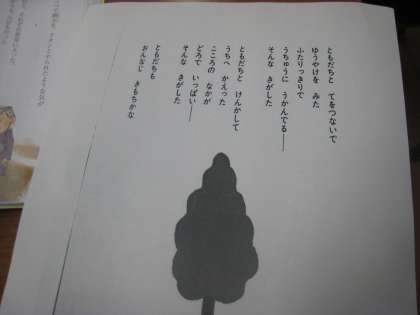 ともだちと てをつないで
ゆうやけを みた
ふたりっきりで
うちゅうに うかんでる——
そんな きがした
ともだちと けんかして
うちへ かえった
こころの なかが
どろで いっぱい——
そんな きがした
ともだちも
おんなじ きもちかな